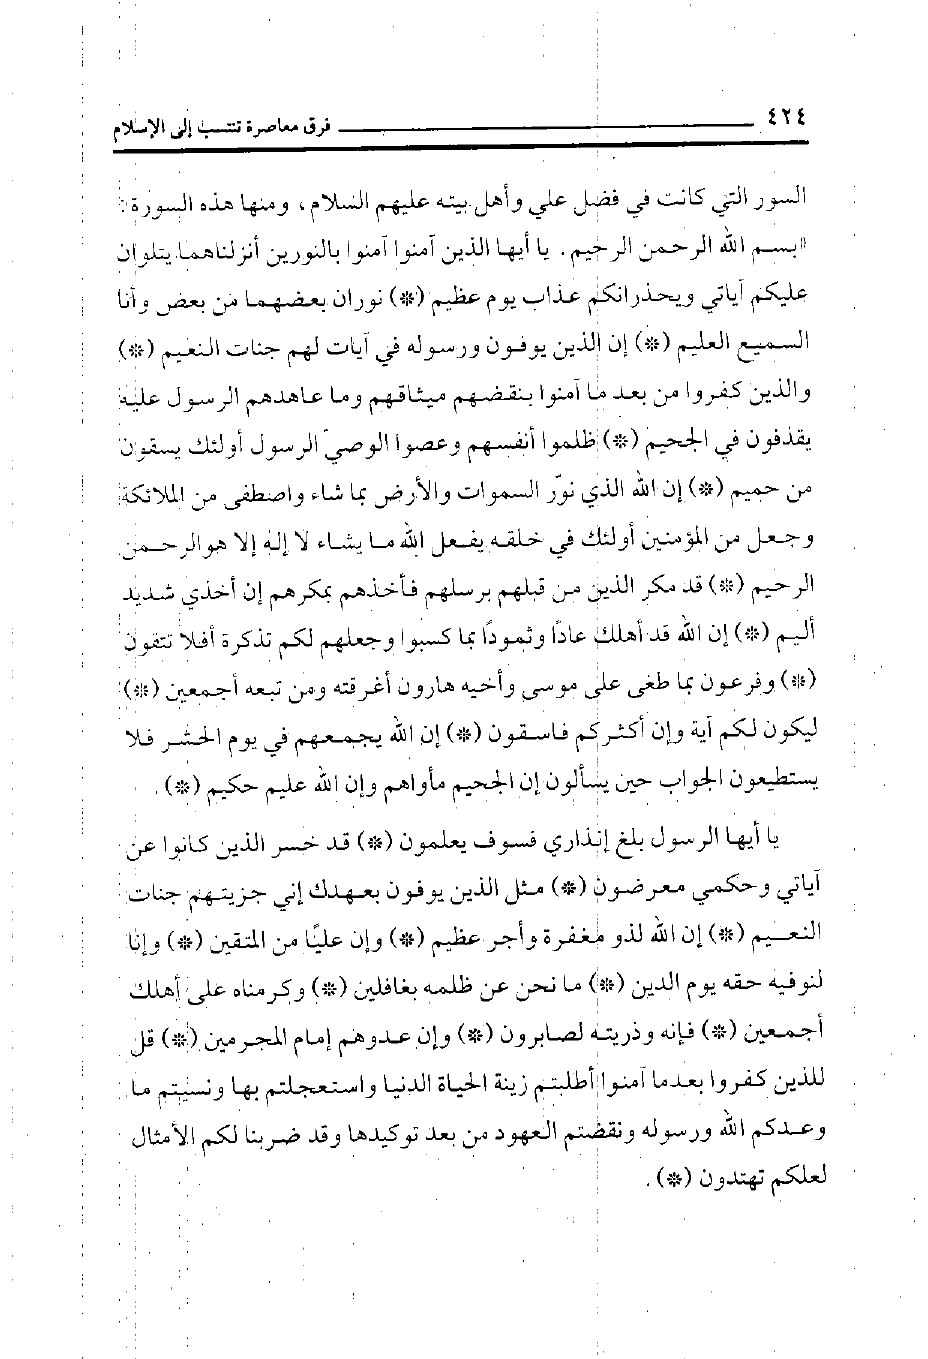 ٤٢٤ فرق معاصرة تنتسب إلى الإسلام
السور التي كانت في فضل علي وأهل بيته عليهم السلام، ومنها هذه السورة:
«بسم الله الرحمن الرحيم. يا أيها الذين آمنوا آمنوا بالنورين أنزلناهما يتلوان
عليكم آياتي ويحذرانكم عذاب يوم عظيم (*) نوران بعضهما من بعض وأنا
السميع العليم (*) إن الذين يوفون ورسوله في آيات لهم جنات النعيم (*)
والذين كفروا من بعد ما آمنوا بنقضهم ميثاقهم وما عاهدهم الرسول عليه
يقذفون في الجحيم (*) ظلموا أنفسهم وعصوا الوصيّ الرسول أولئك يسقون
من حميم (*) إن الله الذي نوّر السموات والأرض بما شاء واصطفى من الملائكة
وجعل من المؤمنين أولئك في خلقه يفعل الله ما يشاء لا إله إلا هو الرحمن
الرحيم (*) قد مكر الذين من قبلهم برسلهم فأخذهم بمكرهم إن أخذي شديد
أليم (*) إن الله قد أهلك عادًا وثمودًا بما كسبوا وجعلهم لكم تذكرة أفلا تتقون
(*) وفرعون بما طغى على موسى وأخيه هارون أغرقته ومن تبعه أجمعين (*)
ليكون لكم آية وإن أكثركم فاسقون (*) إن الله يجمعهم في يوم الحشر فلا
يستطيعون الجواب حين يسألون إن الجحيم مأواهم وإن الله عليم حكيم (*).
يا أيها الرسول بلغ إنذاري فسوف يعلمون (*) قد خسر الذين كانوا عن
آياتي وحكمي معرضون (*) مثل الذين يوفون بعهدك إني جزيتهم جنات
النعيم (*) إن الله لذو مغفرة وأجر عظيم (*) وإن عليًا من المتقين (*) وإنا
لنوفيه حقه يوم الدين (*) ما نحن عن ظلمه بغافلين (*) وكرمناه على أهلك
أجمعين (*) فإنه وذريته لصابرون (*) وإن عدوهم إمام المجرمين (*) قل
للذين كفروا بعدما آمنوا أطلبتم زينة الحياة الدنيا واستعجلتم بها ونسيتم ما
وعدكم الله ورسوله ونقضتم العهود من بعد توكيدها وقد ضربنا لكم الأمثال
لعلكم تهتدون (*).